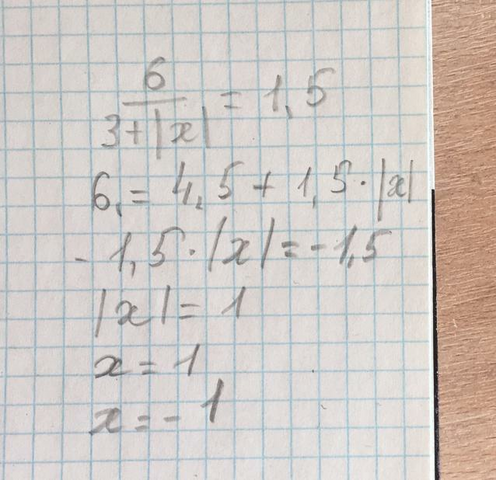 6
3+|x| = 1,5
6 = 4,5 + 1,5·|x|
- 1,5·|x| = -1,5
|x| = 1
x = 1
x = -1